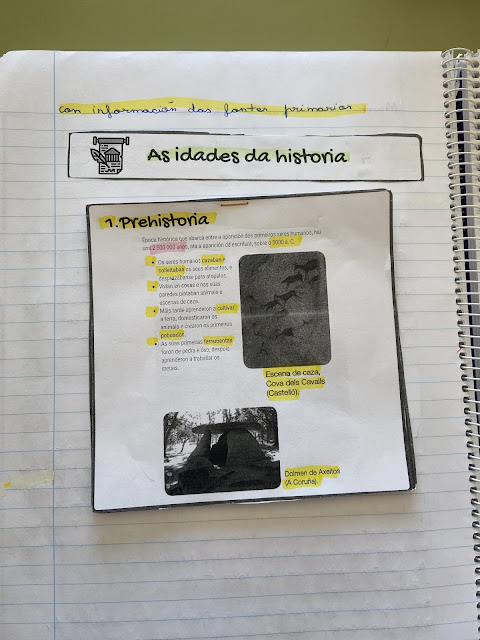 con información das fontes primarias
As idades da historia
1. Prehistoria
Época histórica que abarca entre a aparición dos primeiros seres humanos, hai
uns 2 500 000 anos, ata a aparición da escritura, sobre o 3000 a. C.
Os seres humanos cazaban e
colleitaban os seus alimentos, e
desprazábanse para atopalos.
Vivían en covas e nos súas
paredes pintaban animais e
escenas de caza.
Máis tarde aprenderon a cultivar
a terra, domesticaron os
animais e crearon os primeiros
poboados.
As súas primeiras ferramentas
foron de pedra e óso; despois
aprenderon a traballar os
metais.
Escena de caza,
Cova dels Cavalls
(Castelló).
Dolmen de Axeitos
(A Coruña).